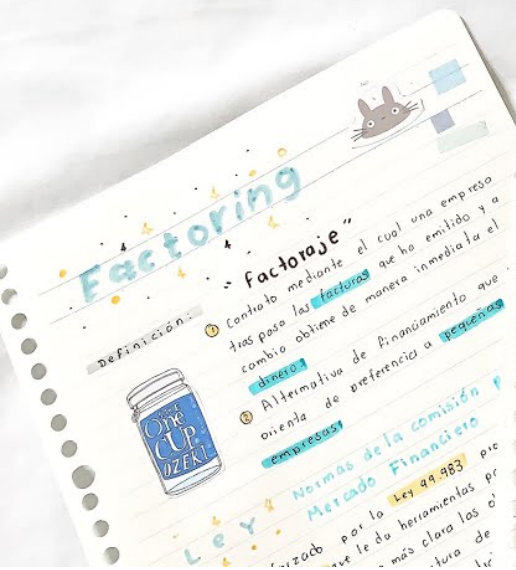 Factoring
"Factoraje"
Definición:
① Contrato mediante el cual una empresa
traspasa las facturas que ha emitido y a
cambio obtiene de manera inmediata el
dinero
② Alternativa de financiamiento que
orienta de preferencia a pequeñas
empresas
THE
One
CUP
OZEKI
Ley
Normas de la comisión p
Mercado Financiero
por la Ley 49.983 pro
que le da herramientas pr
más clara las o
de